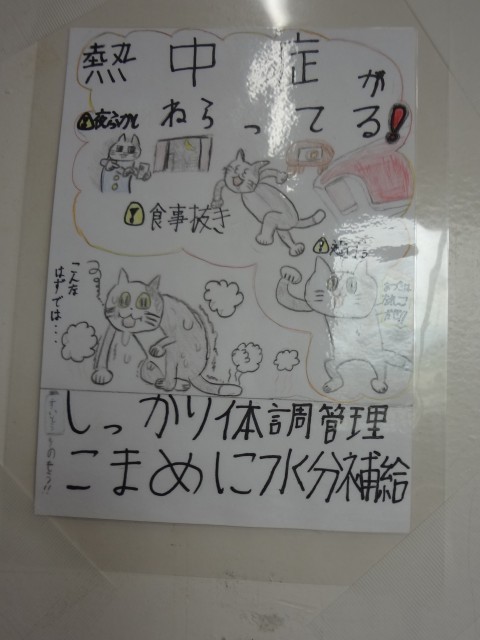 熱中症が
ねらってる!
夜ふかし
食事抜き
こんな
はずでは・・・
しっかり体調管理
こまめに水分補給